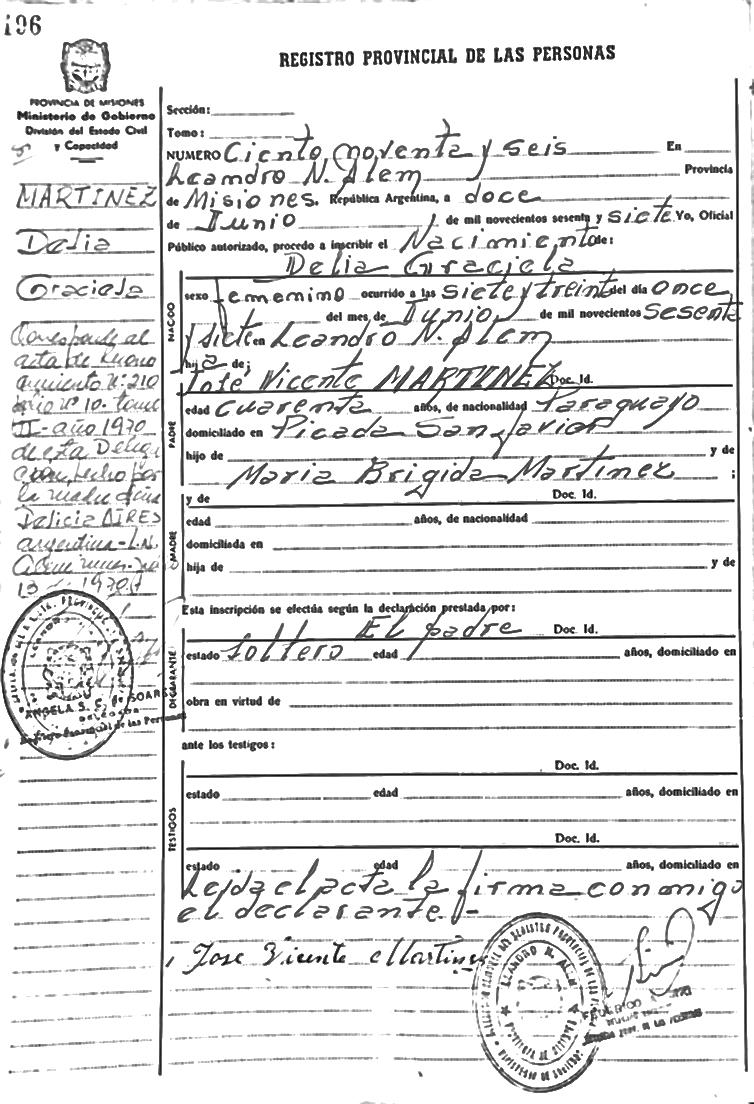 196
REGISTRO PROVINCIAL DE LAS PERSONAS
PROVINCIA DE MISIONES
Ministerio de Gobierno
División del Estado Civil
y Capacidad
MARTINEZ
Delia
Graciela
Corresponde al
acta de
Nº 210
Nº 10 - tomo
II - año 1970
de esta
por
la madre
Delicia AIRES
argentina - L.N.
13 1970
ANGELA S. C. de SOAR
Registro Provincial de las Personas
Sección:
Tomo:
NUMERO Ciento noventa y seis En
Leandro N. Alem Provincia
de Misiones. República Argentina, a doce
de Junio de mil novecientos sesenta y siete Yo, Oficial
Público autorizado, procedo a inscribir el Nacimiento de:
Delia Graciela
NAC-DO
sexo femenino ocurrido a las siete y treint del día once
del mes de Junio de mil novecientos sesenta
y siete en Leandro N. Alem
hija de:
José Vicente MARTINEZ Doc. Id.
PADRE
edad cuarenta años, de nacionalidad Paraguayo
domiciliado en Picada San Javier
hijo de y de
Maria Brigida Martinez ;
y de Doc. Id.
MADRE
edad años, de nacionalidad
domiciliada en
hija de y de
Esta inscripción se efectúa según la declaración prestada por:
El padre Doc. Id.
DECLARANTE
estado soltero edad años, domiciliado en
obra en virtud de
ante los testigos:
Doc. Id.
TESTIGOS
estado edad años, domiciliado en
Doc. Id.
estado edad años, domiciliado en
Leída el acta la firma conmigo
el declarante.-
Jose Vicente Martinez
LEANDRO N. ALEM
PROVINCIA DE MISIONES
FEDERICO